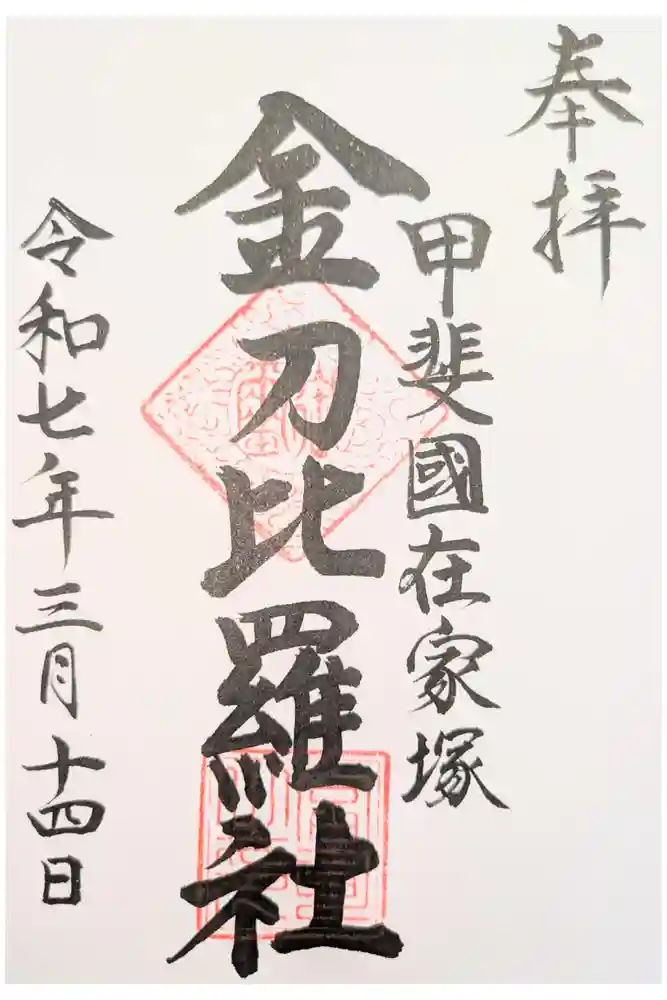 奉拝
甲斐國在家塚
金刀比羅社
令和七年三月十四日